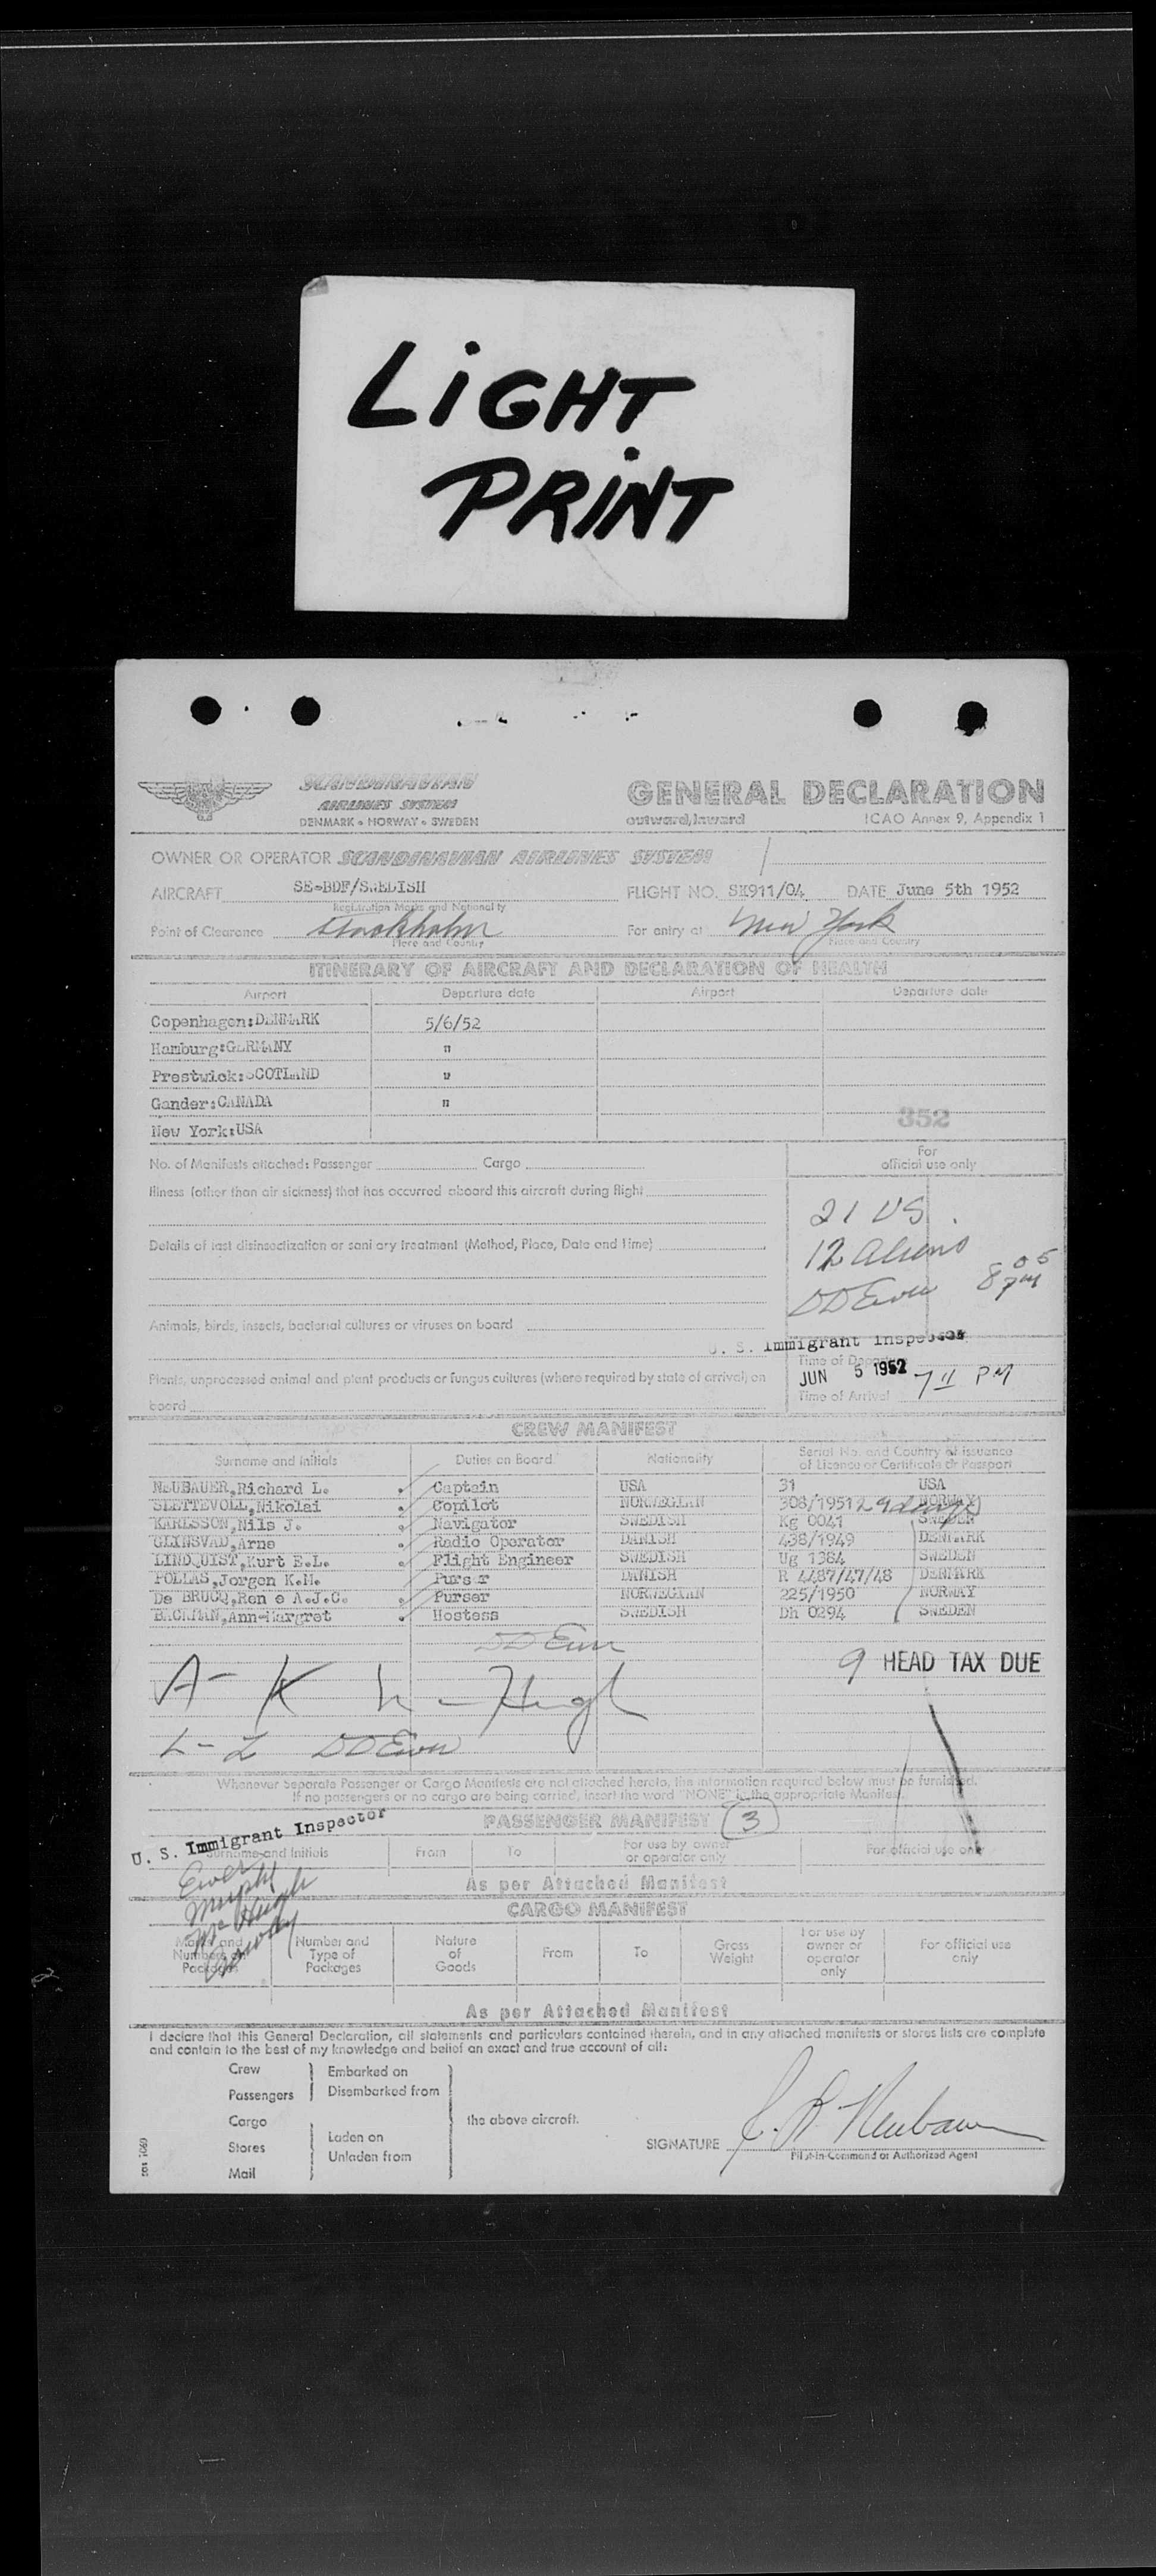 LiGHT
PRiNT
SCANDINAVIAN
AIRLINES SYSTEM
DENMARK • NORWAY • SWEDEN
GENERAL DECLARATION
outward/inward ICAO Annex 9, Appendix 1
OWNER OR OPERATOR SCANDINAVIAN AIRLINES SYSTEM
AIRCRAFT SE-BDF/SWEDISH FLIGHT NO. SK911/04 DATE June 5th 1952
Registration Marks and Nationality
Point of Clearance Stockholm For entry at New York
Place and Country Place and Country
ITINERARY OF AIRCRAFT AND DECLARATION OF HEALTH
Airport Departure date Airport Departure date
Copenhagen:DENMARK 5/6/52
Hamburg:GERMANY "
Prestwick:SCOTLAND "
Gander:CANADA "
New York:USA
352
No. of Manifests attached: Passenger Cargo
For
official use only
Illness (other than air sickness) that has occurred aboard this aircraft during flight
21 US
Details of last disinsectization or sanitary treatment (Method, Place, Date and Time)
12 Aliens
DD Ewen 8 05 PM
Animals, birds, insects, bacterial cultures or viruses on board
U. S. Immigrant Inspector
Time of Departure
JUN 5 1952 7 11 PM
Plants, unprocessed animal and plant products or fungus cultures (where required by state of arrival) on
board
Time of Arrival
CREW MANIFEST
Surname and Initials Duties on Board Nationality Serial No. and Country of issuance
of Licence or Certificate or Passport
NEUBAUER,Richard L. Captain USA 31 USA
SLETTEVOLL,Nikolai Copilot NORWEGIAN 308/1951 29 days NORWAY
KARLSSON,Nils J. Navigator SWEDISH Kg 0041 SWEDEN
GLINSVAD,Arne Radio Operator DANISH 438/1949 DENMARK
LINDQUIST,Kurt E.L. Flight Engineer SWEDISH Ug 1384 SWEDEN
POLLAS,Jorgen K.M. Purser DANISH R 4487/47/48 DENMARK
De BRUCQ,Ren e A.J.C. Purser NORWEGIAN 225/1950 NORWAY
BACKMAN,Ann-Margret Hostess SWEDISH Dh 0294 SWEDEN
DD Ewen
9 HEAD TAX DUE
A - K
L - Z DD Ewen
Whenever Separate Passenger or Cargo Manifests are not attached hereto, the information required below must be furnished.
If no passengers or no cargo are being carried, insert the word "NONE" in the appropriate Manifest.
PASSENGER MANIFEST 3
U. S. Immigrant Inspector
Surname and Initials From To For use by owner
or operator only For official use only
Ewen
Murphy
McHugh
Conway
As per Attached Manifest
CARGO MANIFEST
Marks and
Numbers on
Packages
Number and
Type of
Packages
Nature
of
Goods
From To
Gross
Weight
For use by
owner or
operator
only
For official use
only
As per Attached Manifest
I declare that this General Declaration, all statements and particulars contained therein, and in any attached manifests or stores lists are complete
and contain to the best of my knowledge and belief an exact and true account of all:
Crew Embarked on
Passengers Disembarked from
Cargo the above aircraft.
Stores Laden on
Mail Unladen from
SIGNATURE
Pilot-in-Command or Authorized Agent